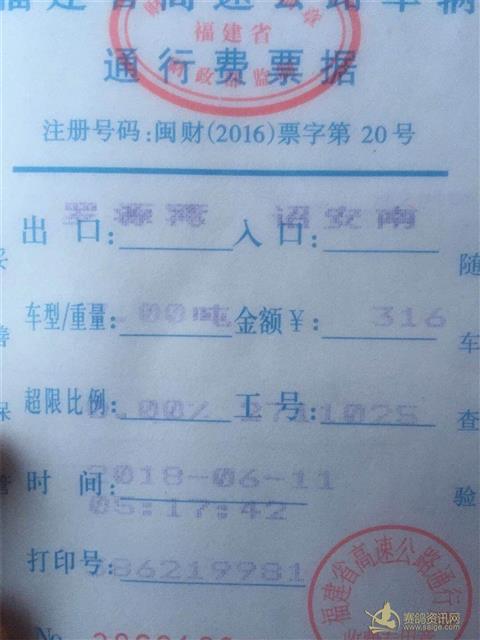 福建省高速公路车辆
通行费票据
福建省
注册号码:闽财(2016)票字第 20 号
罗源湾 诏安南
出 口: 入 口:
车型/重量: .00吨 金额¥: 316
超限比例: 0.00% 工号: 2711025
时 间: 2018-06-11
05:17:42
打印号: 86219981
随
车
查
验
妥
善
保
管
福建省高速公路通行
No
赛鸽资讯网
www.saige.com